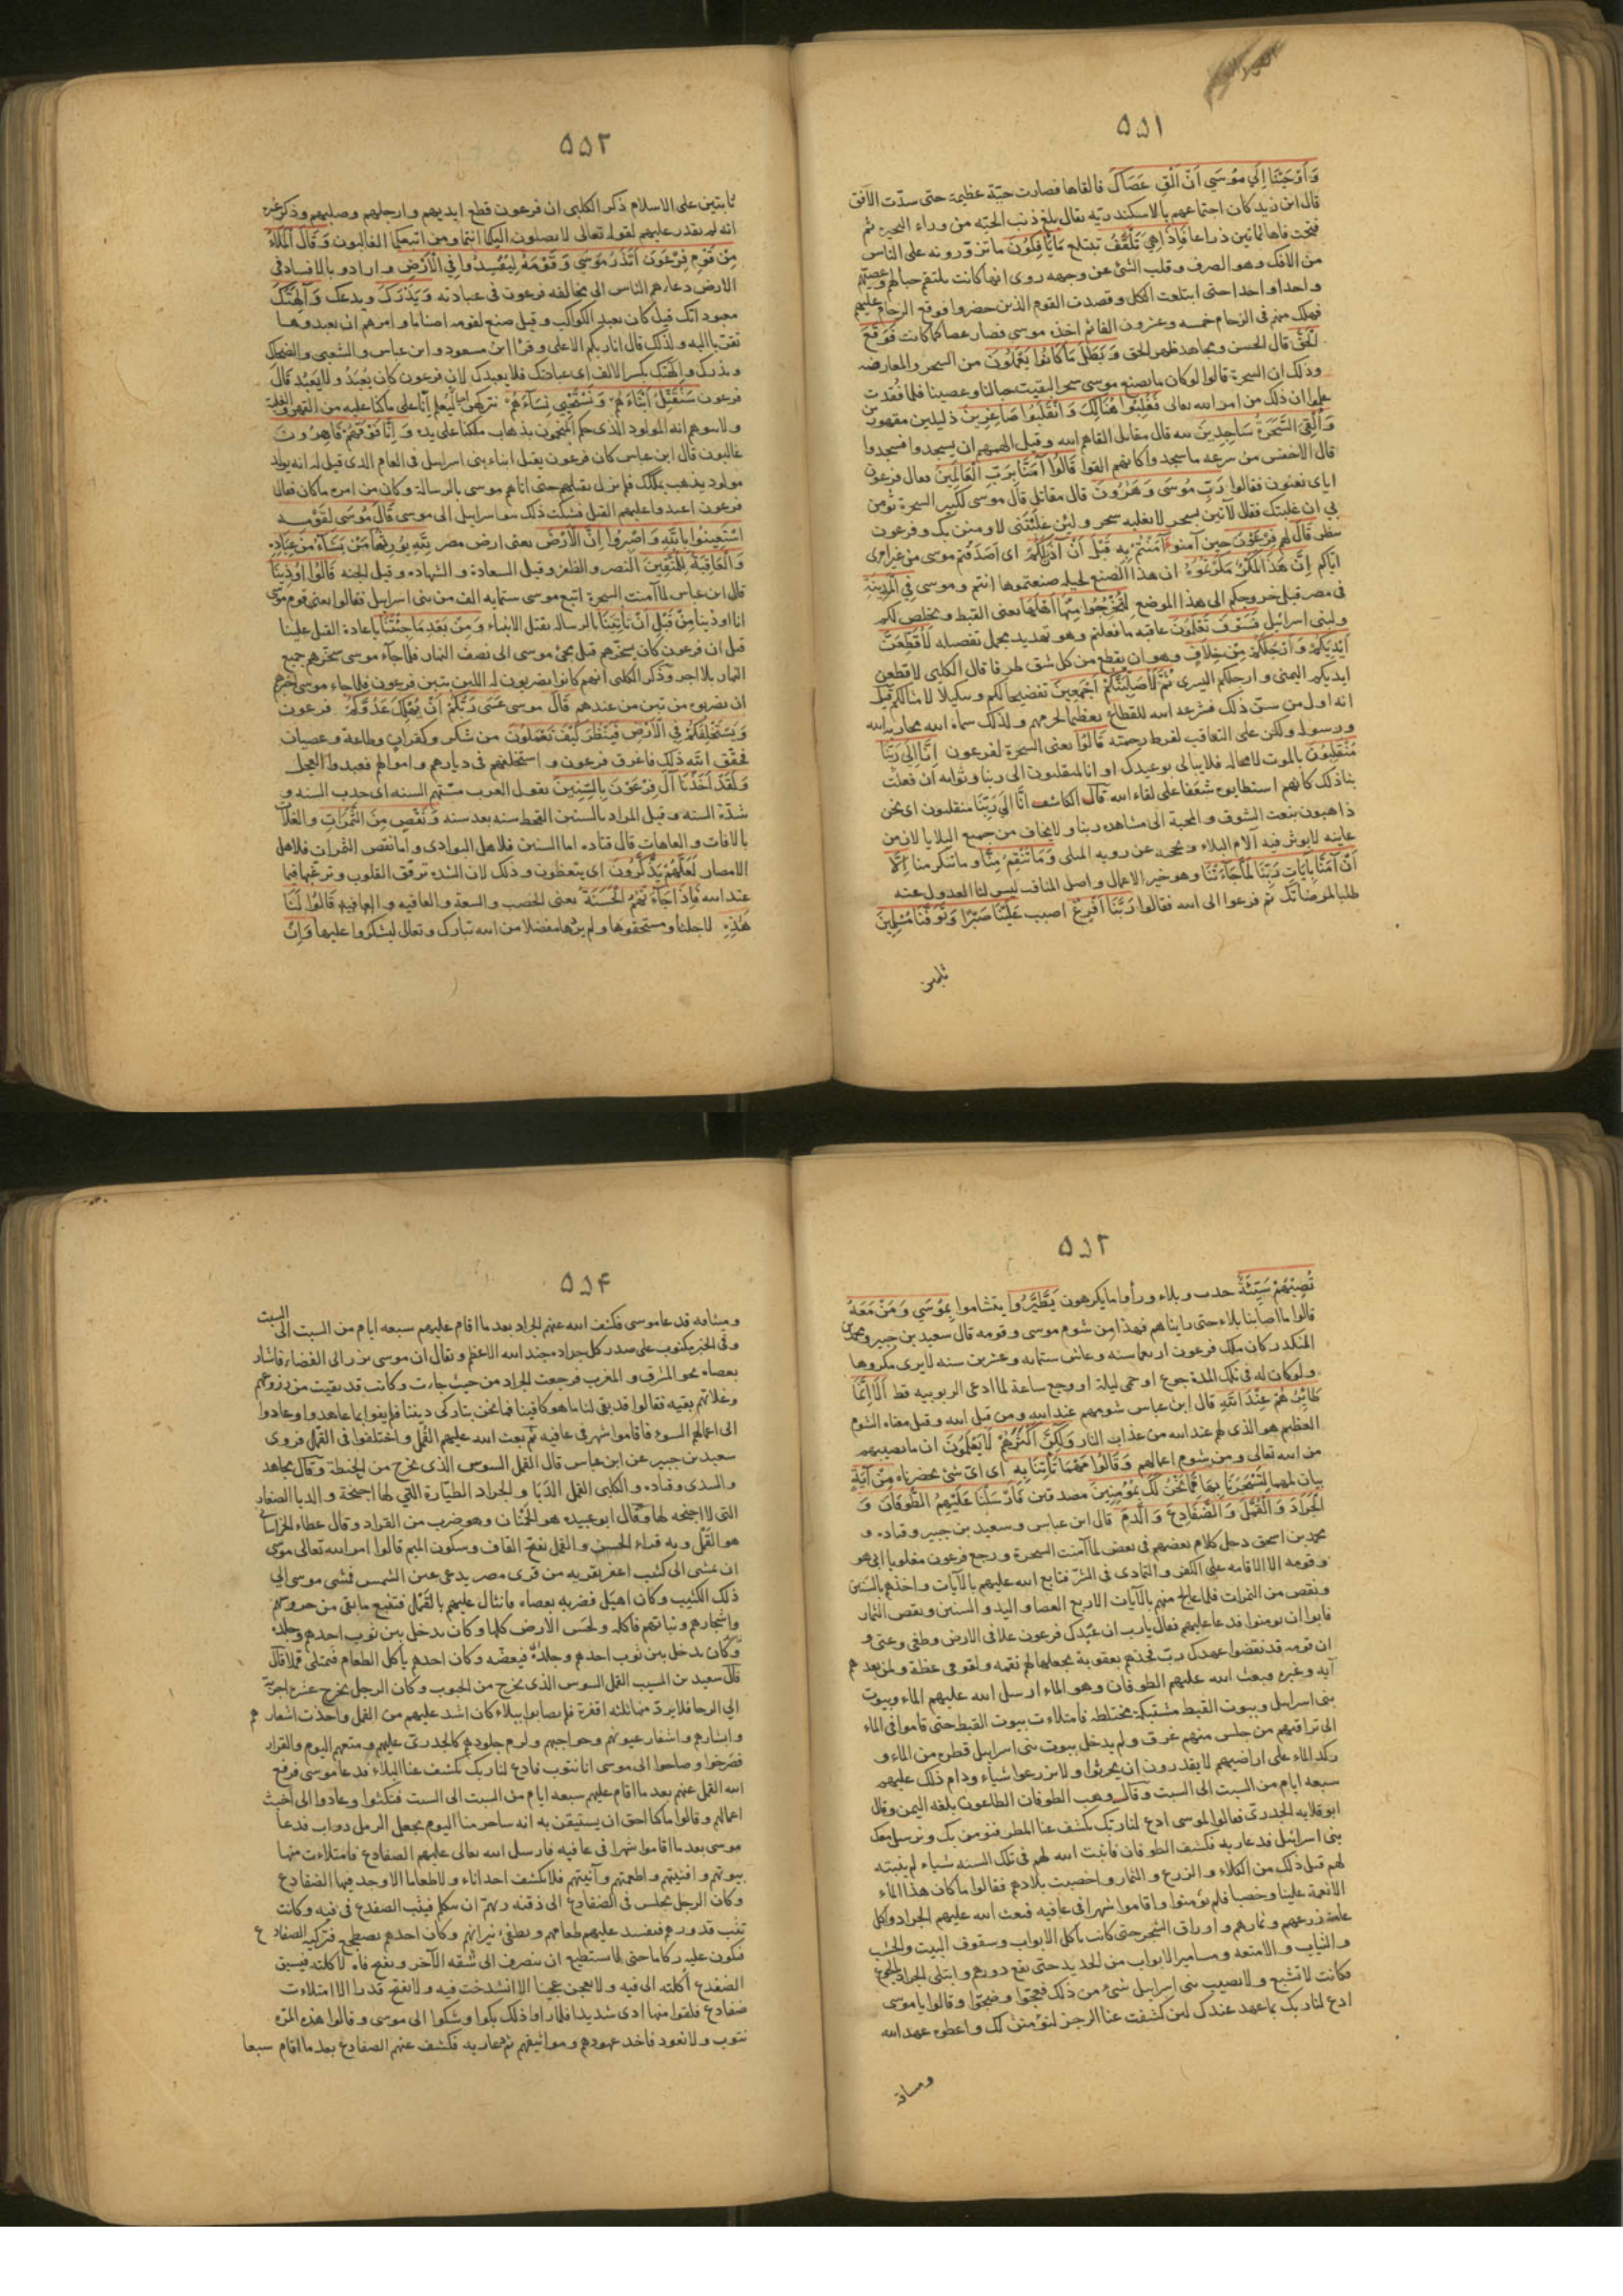 ۵۵۱
وَأَوْحَيْنَا اِلَي مُوسَي اَنْ اَلْقِ عَصَاكَ فالقاها فصارت حيّة عظيمة حتى سدّت الآفق
قال ابن زيد كان اجتماعهم بالاسكندريّه يقال بلغ ذنب الحيّه من وراء البحيره ثم
فتحت فاها ثمانين ذراعا فَاِذَا هِيَ تَلْقَفُ تبتلع مَايَأْفِكُونَ ما تزوّرونه على الناس
من الافك وهو الصرف وقلب الشئ عن وجهه روى انها كانت يلتقم حبالهم وعصيّهم
واحدا واحدا حتى ابتلعت الكل وقصدت القوم الذين حضروا فوقع الزحام عليهم
فهلك منهم فى الزحام خمسه وعشرون الفا ثم اخذه موسى فصار عصا كما كانت فَوَقَعَ
الْحَقّ قال الحسن ومجاهد ظهر الحق وَبَطَلَ مَاكَانُوا يَعْمَلُونَ من السحر والمعارضه
وذلك ان السحرة قالوا لوكان ما يصنع موسى سحرا لبقيت حبالنا وعصينا فلما فقدت
علموا ان ذلك من امر الله تعالى فَغُلِبُوا هُنَالِكَ وَانْقَلَبُوا صَاغِرِينَ ذليلين مقهورين
وَأُلْقِيَ السَّحَرَةُ سَاجِدِينَ لله قال مقاتل القاهم الله وقيل الهمهم ان يسجدوا فسجدوا
قال الاخفش من سرعه ما سجدوا كانهم القوا قَالُوا آمَنَّا بِرَبِّ الْعَالَمِينَ فقال فرعون
اياى تعنون فقالوا رَبِّ مُوسَى وَهَرُونَ قال مقاتل قال موسى لكبير السحرة تؤمن
بي ان غلبتك فقال لآتين بسحر لا يغلبه سحر ولئن غلبتنى لاومنن بك وفرعون
ينظر قال لهم فِرْعَوْنُ حين آمنوا آمَنْتُمْ بِهِ قَبْلَ اَنْ آذَنَ لَكُمْ اى اصدقتم موسى من غير امرى
اياكم اِنَّ هَذَا لَمَكْرٌ مَكَرْتُمُوهُ ان هذا الصنع لحيله صنعتموها انتم وموسى فِي الْمَدِينَةِ
فى مصر قبل خروجكم الى هذا الموضع لِتُخْرِجُوا مِنْهَا اَهْلَهَا يعنى القبط ويخلص لكم
ولبنى اسرائيل فَسَوْفَ تَعْلَمُونَ عاقبه ما فعلتم وهو تهديد مجمل تفصيله لَأُقَطِّعَنَّ
اَيْدِيَكُمْ وَاَرْجُلَكُمْ مِنْ خِلَافٍ وهو ان يقطع من كل شق طرفا قال الكلبى لاقطعن
ايديكم اليمنى وارجلكم اليسرى ثُمَّ لَأُصَلِّبَنَّكُمْ اَجْمَعِينَ تفضيحا لكم وتنكيلا لامثالكم قيل
انه اول من سنّ ذلك فشرعه الله للقطاع تعظيما لجرمهم ولذلك سماه الله محاربة الله
ورسوله ولكن على التعاقب لفرط رحمته قَالُوا يعنى السحرة لفرعون اِنَّا اِلَى رَبِّنَا
مُنْقَلِبُونَ بالموت لامحاله فلا يبالى بوعيدك او انا لمنقلبون الى ربنا وثوابه ان فعلت
بنا ذلك كانهم استطابوه شغفا على لقاء الله قال الكاشف انَّا الَي رَبِّنَا منقلبون اى نحن
ذاهبون بنعت الشوق والمحبة الى مشاهده ربنا ولا يخاف من جميع البلايا لان من
عاينه لا يوثر فيه آلام البلاء وتحجبه عن رويه المبلى وَمَا تَنْقِمُ مِنَّا وما تنكر منا اِلَّا
اَنْ آمَنَّا بِآيَاتِ رَبِّنَا لَمَّا جَاءَتْنَا وهو خير الاعمال واصل المناقب ليس لنا العدول عنه
طلبا لمرضاتك ثم فزعوا الى الله فقالوا رَبَّنَا اَفْرِغْ اصبب عَلَيْنَا صَبْرًا وَتَوَفَّنَا مُسْلِمِينَ
ثابتين
۵۵۲
ثابتين على الاسلام ذكر الكلبى ان فرعون قطع ايديهم وارجلهم وصلبهم وذكر غيره
انه لم يقدر عليهم لقوله تعالى لا يصلون اليكما انتما ومن اتبعكما الغالبون وَقَالَ الْمَلَأُ
مِنْ قَوْمِ فِرْعَوْنَ اَتَذَرُ مُوسَى وَقَوْمَهُ لِيُفْسِدُوا فِي الْاَرْضِ وارادو بالافساد فى
الارض دعاءهم الناس الى مخالفه فرعون فى عبادته وَيَذَرَكَ ويدعك وَآلِهَتَكَ
معبوداتك قيل كان يعبد الكواكب وقيل صنع لقومه اصناما وامرهم ان يعبدوها
تقربا اليه ولذلك قال اناربكم الاعلى وقرأ ابن مسعود وابن عباس والشعبى والضحاك
ويذرك والهتك بكسر الالف اى عبادتك فلا يعبدك لان فرعون كان يُعبَدُ ولا يَعبُد قَالَ
فرعون سَنُقَتِّلُ اَبْنَاءَهُمْ وَنَسْتَحْيِي نِسَاءَهُمْ نتركهن احياء ليعلم انّا على ما كنا عليه من القهر والغلبة
ولا يتوهم انه المولود الذى حكم المنجمون بذهاب ملكنا على يده وَاِنَّا فَوْقَهُمْ قَاهِرُونَ
غالبون قال ابن عباس كان فرعون يقتل ابناء بنى اسرايل فى العام الذى قيل له انه يولد
مولود يذهب بملكك فلم يزل يقتلهم حتى اتاهم موسى بالرسالة وكان من امره ماكان فقال
فرعون اعيدوا عليهم القتل فشكت ذلك بنوا سراييل الى موسى قَالَ مُوسَى لِقَوْمِهِ
اسْتَعِينُوا بِاللَّهِ وَاصْبِرُوا اِنَّ الْاَرْضَ يعنى ارض مصر لِلَّهِ يُورِثُهَا مَنْ يَشَاءُ مِنْ عِبَادِهِ
وَالْعَاقِبَةُ لِلْمُتَّقِينَ النصر والظفر وقيل السعادة والشهاده وقيل الجنه قَالُوا اُوذِينَا
قال ابن عباس لما آمنت السحرة اتبع موسى ستمايه الف من بنى اسرايل فقالوا يعنى قوم موسى
انا اوذينا مِنْ قَبْلِ اَنْ تَأْتِيَنَا بالرساله بقتل الابناء وَمِنْ بَعْدِ مَا جِئْتَنَا باعادة القتل علينا
قيل ان فرعون كان يسخّرهم قبل مجئ موسى الى نصف النهار فلما جآء موسى سخّرهم جميع
النهار بلا اجر وذكر الكلبى انهم كانوا يضربون له اللبن بتبن فرعون فلما جاء موسى اخبرهم
ان يضربوه من تبن من عندهم قَالَ موسى عَسَى رَبُّكُمْ اَنْ يُهْلِكَ عَدُوَّكُمْ فرعون
وَيَسْتَخْلِفَكُمْ فِي الْاَرْضِ فَيَنْظُرَ كَيْفَ تَعْمَلُونَ من شكر وكفران وطاعة وعصيان
فحقّق الله ذلك فاغرق فرعون واستخلفهم فى ديارهم واموالهم فعبدوا العجل
وَلَقَدْ اَخَذْنَا آلَ فِرْعَوْنَ بِالسِّنِينَ يقول العرب مسّتهم السنه اى جدب السنه و
شدّة السنه وقيل المراد بالسنين القحط سنه بعد سنه وَنَقْصٍ مِنَ الثَّمَرَاتِ والغلات
بالافات والعاهات قال قتاده اما السنين فلاهل البوادى واما نقص الثمرات فلاهل
الامصار لَعَلَّهُمْ يَذَّكَّرُونَ اى يتعظون وذلك لان الشده ترقق القلوب وترغبها فيما
عند الله فَاِذَا جَاءَتْهُمُ الْحَسَنَةُ يعنى الخصب والسعة والعافيه قَالُوا لَنَا
هَذِهِ لاجلنا ومستحقوها ولم يرها مفضلا من الله تبارك وتعالى ليشكروا عليها وَاِنْ
۵۵۳
تُصِبْهُمْ سَيِّئَةٌ جدب وبلاء ورأوا ما يكرهون يَطَّيَّرُوا يتشاموا بِمُوسَي وَمَنْ مَعَهُ
قالوا ما اصابنا بلاء حتى رايناهم فهذا من شوم موسى وقومه قال سعيد بن جبير ومحمد بن
المنكدر كان ملك فرعون اربعمائة سنه وعاش ستمايه وعشرين سنه لا يرى مكروها
ولوكان له فى تلك المدة جوع او حمى ليلة او وجع ساعة لما ادعى الربوبيه قط اَلَا اِنَّمَا
طَائِرُهُمْ عِنْدَ اللَّهِ قال ابن عباس شومهم عند الله ومن قبل الله وقيل معناه الشوم
العظيم هو الذى لهم عند الله من عذاب النار وَلَكِنَّ اَكْثَرَهُمْ لَا يَعْلَمُونَ ان ما يصيبهم
من الله تعالى ومن شوم اعمالهم وَقَالُوا مَهْمَا تَأْتِنَا بِهِ اى اىّ شئ يحضرناه مِنْ آيَةٍ
بيان لمهما لِتَسْحَرَنَا بِهَا فَمَا نَحْنُ لَكَ بِمُؤْمِنِينَ مصدقين فَاَرْسَلْنَا عَلَيْهِمُ الطُّوفَانَ وَ
الْجَرَادَ وَالْقُمَّلَ وَالضَّفَادِعَ وَالدَّمَ قال ابن عباس وسعيد بن جبير وقتاده و
محمد بن اسحق دخل كلام بعضهم فى بعض لما آمنت السحرة ورجع فرعون مغلوبا ابى هو
وقومه الا الاقامه على الكفر والتمادى فى الشرّ فتابع الله عليهم بالآيات واخذهم بالسنين
ونقص من الثمرات فلما عالج منهم بالآيات الاربع العصا واليد والسنين ونقص الثمار
فابوا ان يومنوا فدعا عليهم فقال يارب ان عبدك فرعون علا فى الارض وطغى وعتى و
ان قومه قد نقضوا عهدك رب فخذهم بعقوبة تجعلها لهم نقمه ولقومى عظة ولمن بعدهم
آيه وعبره فبعث الله عليهم الطوفان وهو الماء ارسل الله عليهم الماء وبيوت
بنى اسرايل وبيوت القبط مشتبكة مختلطه فامتلاءت بيوت القبط حتى قاموا فى الماء
الى تراقيهم من جلس منهم غرق ولم يدخل بيوت بنى اسرايل قطره من الماء و
ركد الماء على اراضيهم لا يقدرون ان يحرثوا ولا يزرعوا شياء ودام ذلك عليهم
سبعه ايام من السبت الى السبت وقال وهب الطوفان الطاعون بلغه اليمن وقال
ابوقلابه الجدرىّ فقالوا لموسى ادع لنا ربك يكشف عنا المطر فنومن بك ونرسل معك
بنى اسرائيل فدعا ربه فكشف الطوفان فانبت الله لهم فى تلك السنه شياء لم ينبته
لهم قبل ذلك من الكلاء والزرع والثمار واخصبت بلادهم فقالوا ما كان هذا الماء
الا نعمة علينا وخصبا فلم يؤمنوا واقاموا شهرا فى عافيه فبعث الله عليهم الجراد واكل
عامة زرعهم وثمارهم واوراق الشجر حتى كانت يأكل الابواب وسقوف البيت والخشب
والثياب والامتعه ومسامير الابواب من الحديد حتى يقع دورهم وابتلى الجراد بالجوع
فكانت لا تشبع ولا يصيب بنى اسراييل شئ من ذلك فعجّوا وضجّوا وقالوا يا موسى
ادع لنا ربك بما عهد عندك لئن كشفت عنا الرجز لنؤمنن لك واعطوه عهد الله
وميثاقه
۵۵۴
وميثاقه فدعا موسى فكشف الله عنهم الجراد بعد ما اقام عليهم سبعه ايام من السبت الى السبت
وفى الخبر مكتوب على صدر كل جراده جند الله الاعظم ويقال ان موسى برز الى الفضاء فاشار
بعصاه نحو المشرق والمغرب فرجعت الجراد من حيث جاءت وكانت قد بقيت من زروعهم
وغلاتهم بقيه فقالوا قد بقى لنا ما هو كافينا فما نحن بتاركى ديننا فلم يفوا بما عاهدوا وعادوا
الى اعمالهم السوء فاقاموا شهر فى عافيه ثم بعث الله عليهم القُمل واختلفوا فى القمل فروى
سعيد بن جبير عن ابن عباس قال القمل السوس الذى يخرج من الحنطة وقال مجاهد
والسدى وقتاده والكلبى القمل الدَبا والجراد الطيّارة التي لها اجنحة والدبا الصغار
التى لا اجنحه لها وقال ابو عبيده هو الحَمْنان وهو ضرب من القراد وقال عطاء الخراسانى
هو القَمْل وبه قراء الحسن والقمل بفتح القاف وسكون الميم قالوا امر الله تعالى موسى
ان يمشى الى كثيب اعفر بقريه من قرى مصر يدعى عين الشمس فمشى موسى الي
ذلك الكثيب وكان اهيل فضربه بعصاه فانثال عليهم بالقمّل فتتبع ما بقى من حروثهم
واشجارهم ونباتهم فاكله ولحس الارض كلها وكان يدخل بين ثوب احدهم وجلده
وكان يدخل بين ثوب احدهم وجلده فيعضه وكان احدهم ياكل الطعام فيمتلئ قملا قال
قال سعيد بن المسيب القمل السوس الذى يخرج من الحبوب وكان الرجل يخرج عشره اجربة
الي الرحا فلا يرد منها ثلثه اقفزة فلم يصابوا ببلاء كان اشد عليهم من القمل واخذت اشعارهم
وابشارهم واشفار عيونهم وحواجبهم ولزم جلودهم كالجدرىّ عليهم ومنعهم النوم والقرار
فصرخوا وصاحوا الى موسى انا نتوب فادع لنا ربك يكشف عنا البلاء فدعا موسى فرفع
الله القمل عنهم بعد ما اقام عليهم سبعه ايام من السبت الى السبت فنكثوا وعادوا الى اخبث
اعمالهم وقالوا ما كنا احق ان يستيقن به انه ساحر منا اليوم يجعل الرمل دواب فدعا
موسى بعد ما اقاموا شهرا فى عافيه فارسل الله تعالى عليهم الضفادع فامتلاءت منها
بيوتهم وافنيتهم واطعمتهم وآنيتهم فلا يكشف احد اناء ولا طعاما الا وجد فيها الضفادع
وكان الرجل يجلس فى الضفادع الى ذقنه ويهمّ ان يتكلم فيثب الضفدع فى فيه وكانت
تثب قدورهم فيفسد عليهم طعامهم ويطفئ نيرانهم وكان احدهم يضطجع فتركبه الضفادع
فتكون عليه ركاما حتى لا يستطيع ان ينصرف الى شقه الآخر ويفتح فاه لاكلته فيسبق
الضفدع أكلته الى فيه ولا يعجن عجينا الا انشدخت فيه ولا يفتح قدرا الا امتلاءت
ضفادع فلقوا منها اذى شديدا فلما راوا ذلك بكوا وشكوا الى موسى وقالوا هذه المرّه
نتوب ولا نعود فاخذ عهودهم ومواثيقهم ثم دعا ربه فكشف عنهم الضفادع بعد ما اقام سبعا